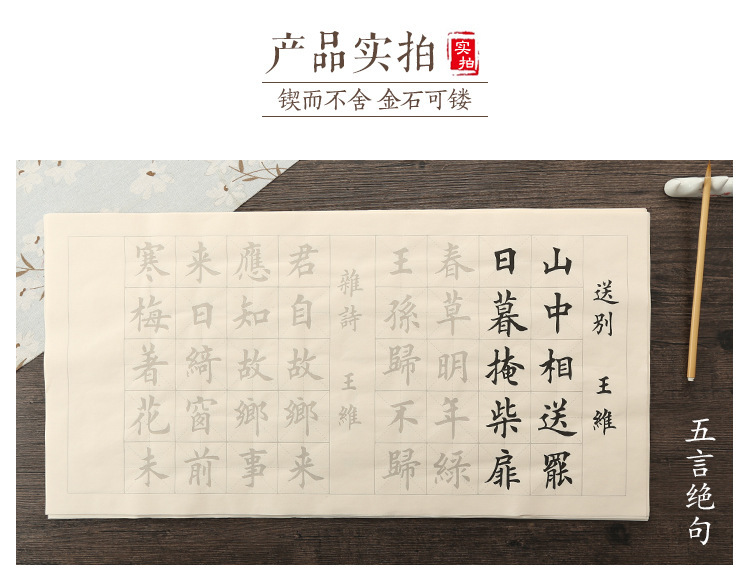 产品实拍
实拍
锲而不舍 金石可镂
送别 王維
山中相送罷
日暮掩柴扉
春草明年綠
王孫歸不歸
雜詩 王維
君自故鄉来
應知故鄉事
来日綺窗前
寒梅著花未
五言绝句